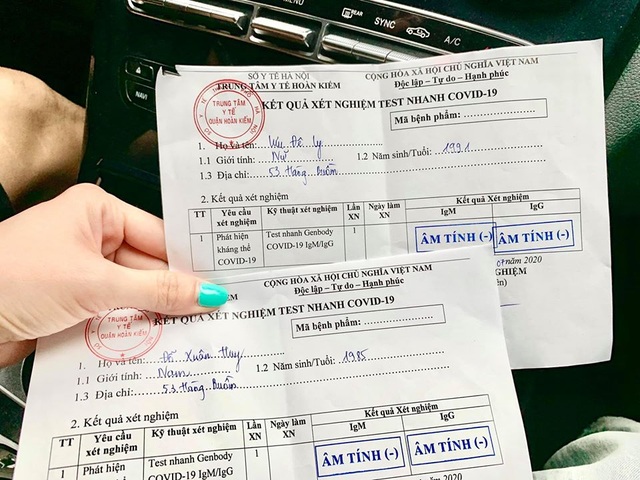 REAR
SYNC
A/C
NAVI
SỞ Y TẾ HÀ NỘI
TRUNG TÂM Y TẾ HOÀN KIẾM
CỘNG HÒA XÃ HỘI CHỦ NGHĨA VIỆT NAM
Độc lập – Tự do – Hạnh phúc
TRUNG TÂM
Y TẾ
QUẬN HOÀN KIẾM
KẾT QUẢ XÉT NGHIỆM TEST NHANH COVID-19
Mã bệnh phẩm: ........................
1. Họ và tên: Đỗ Ly
1.1 Giới tính: Nữ 1.2 Năm sinh/Tuổi: 1991
1.3 Địa chỉ: 53 Hàng Buồm
2. Kết quả xét nghiệm
TT Yêu cầu xét nghiệm Kỹ thuật xét nghiệm Lần XN Ngày làm XN Kết quả Xét nghiệm
IgM IgG
1 Phát hiện kháng thể COVID-19 Test nhanh Genbody COVID-19 IgM/IgG 1 ÂM TÍNH (-) ÂM TÍNH (-)
07 năm 2020
NGHIỆM
CỘNG HÒA XÃ HỘI CHỦ NGHĨA VIỆT NAM
Độc lập – Tự do – Hạnh phúc
TRUNG TÂM
Y TẾ
QUẬN HOÀN KIẾM
KẾT QUẢ XÉT NGHIỆM TEST NHANH COVID-19
Mã bệnh phẩm: ........................
1. Họ và tên: Đỗ Xuân Huy
1.1 Giới tính: Nam 1.2 Năm sinh/Tuổi: 1985
1.3 Địa chỉ: 53 Hàng Buồm
2. Kết quả xét nghiệm
TT Yêu cầu xét nghiệm Kỹ thuật xét nghiệm Lần XN Ngày làm XN Kết quả Xét nghiệm
IgM IgG
1 Phát hiện kháng thể COVID-19 Test nhanh Genbody COVID-19 IgM/IgG 1 ÂM TÍNH (-) ÂM TÍNH (-)
2020